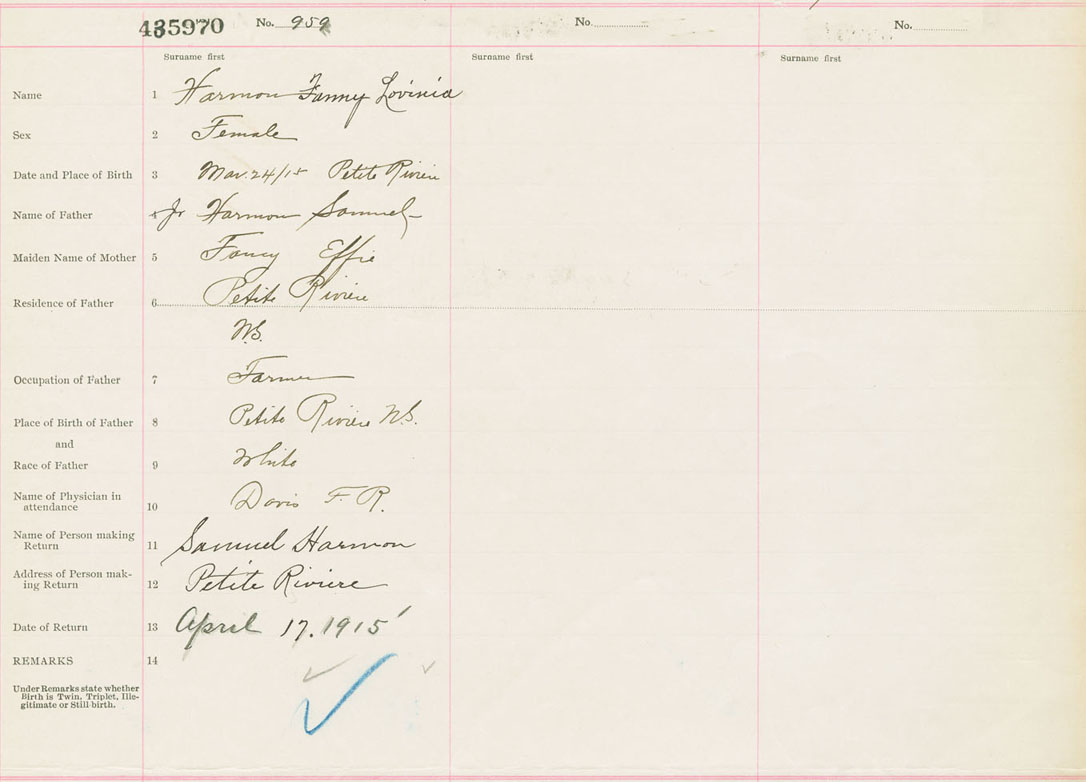 435970 No. 959 No. No.
Surname first Surname first Surname first
Name 1 Harmon Fanny Lovinia
Sex 2 Female
Date and Place of Birth 3 Mar. 24/15 Petite Riviere
Name of Father 4 Jr Harmon Samuel
Maiden Name of Mother 5 Fancy Effie
Residence of Father 6 Petite Riviere
N.S.
Occupation of Father 7 Farmer
Place of Birth of Father 8 Petite Riviere N.S.
and
Race of Father 9 White
Name of Physician in
attendance 10 Davis F. R.
Name of Person making
Return 11 Samuel Harmon
Address of Person mak-
ing Return 12 Petite Riviere
Date of Return 13 April 17. 1915
REMARKS 14
Under Remarks state whether
Birth is Twin, Triplet, Ille-
gitimate or Still-birth.